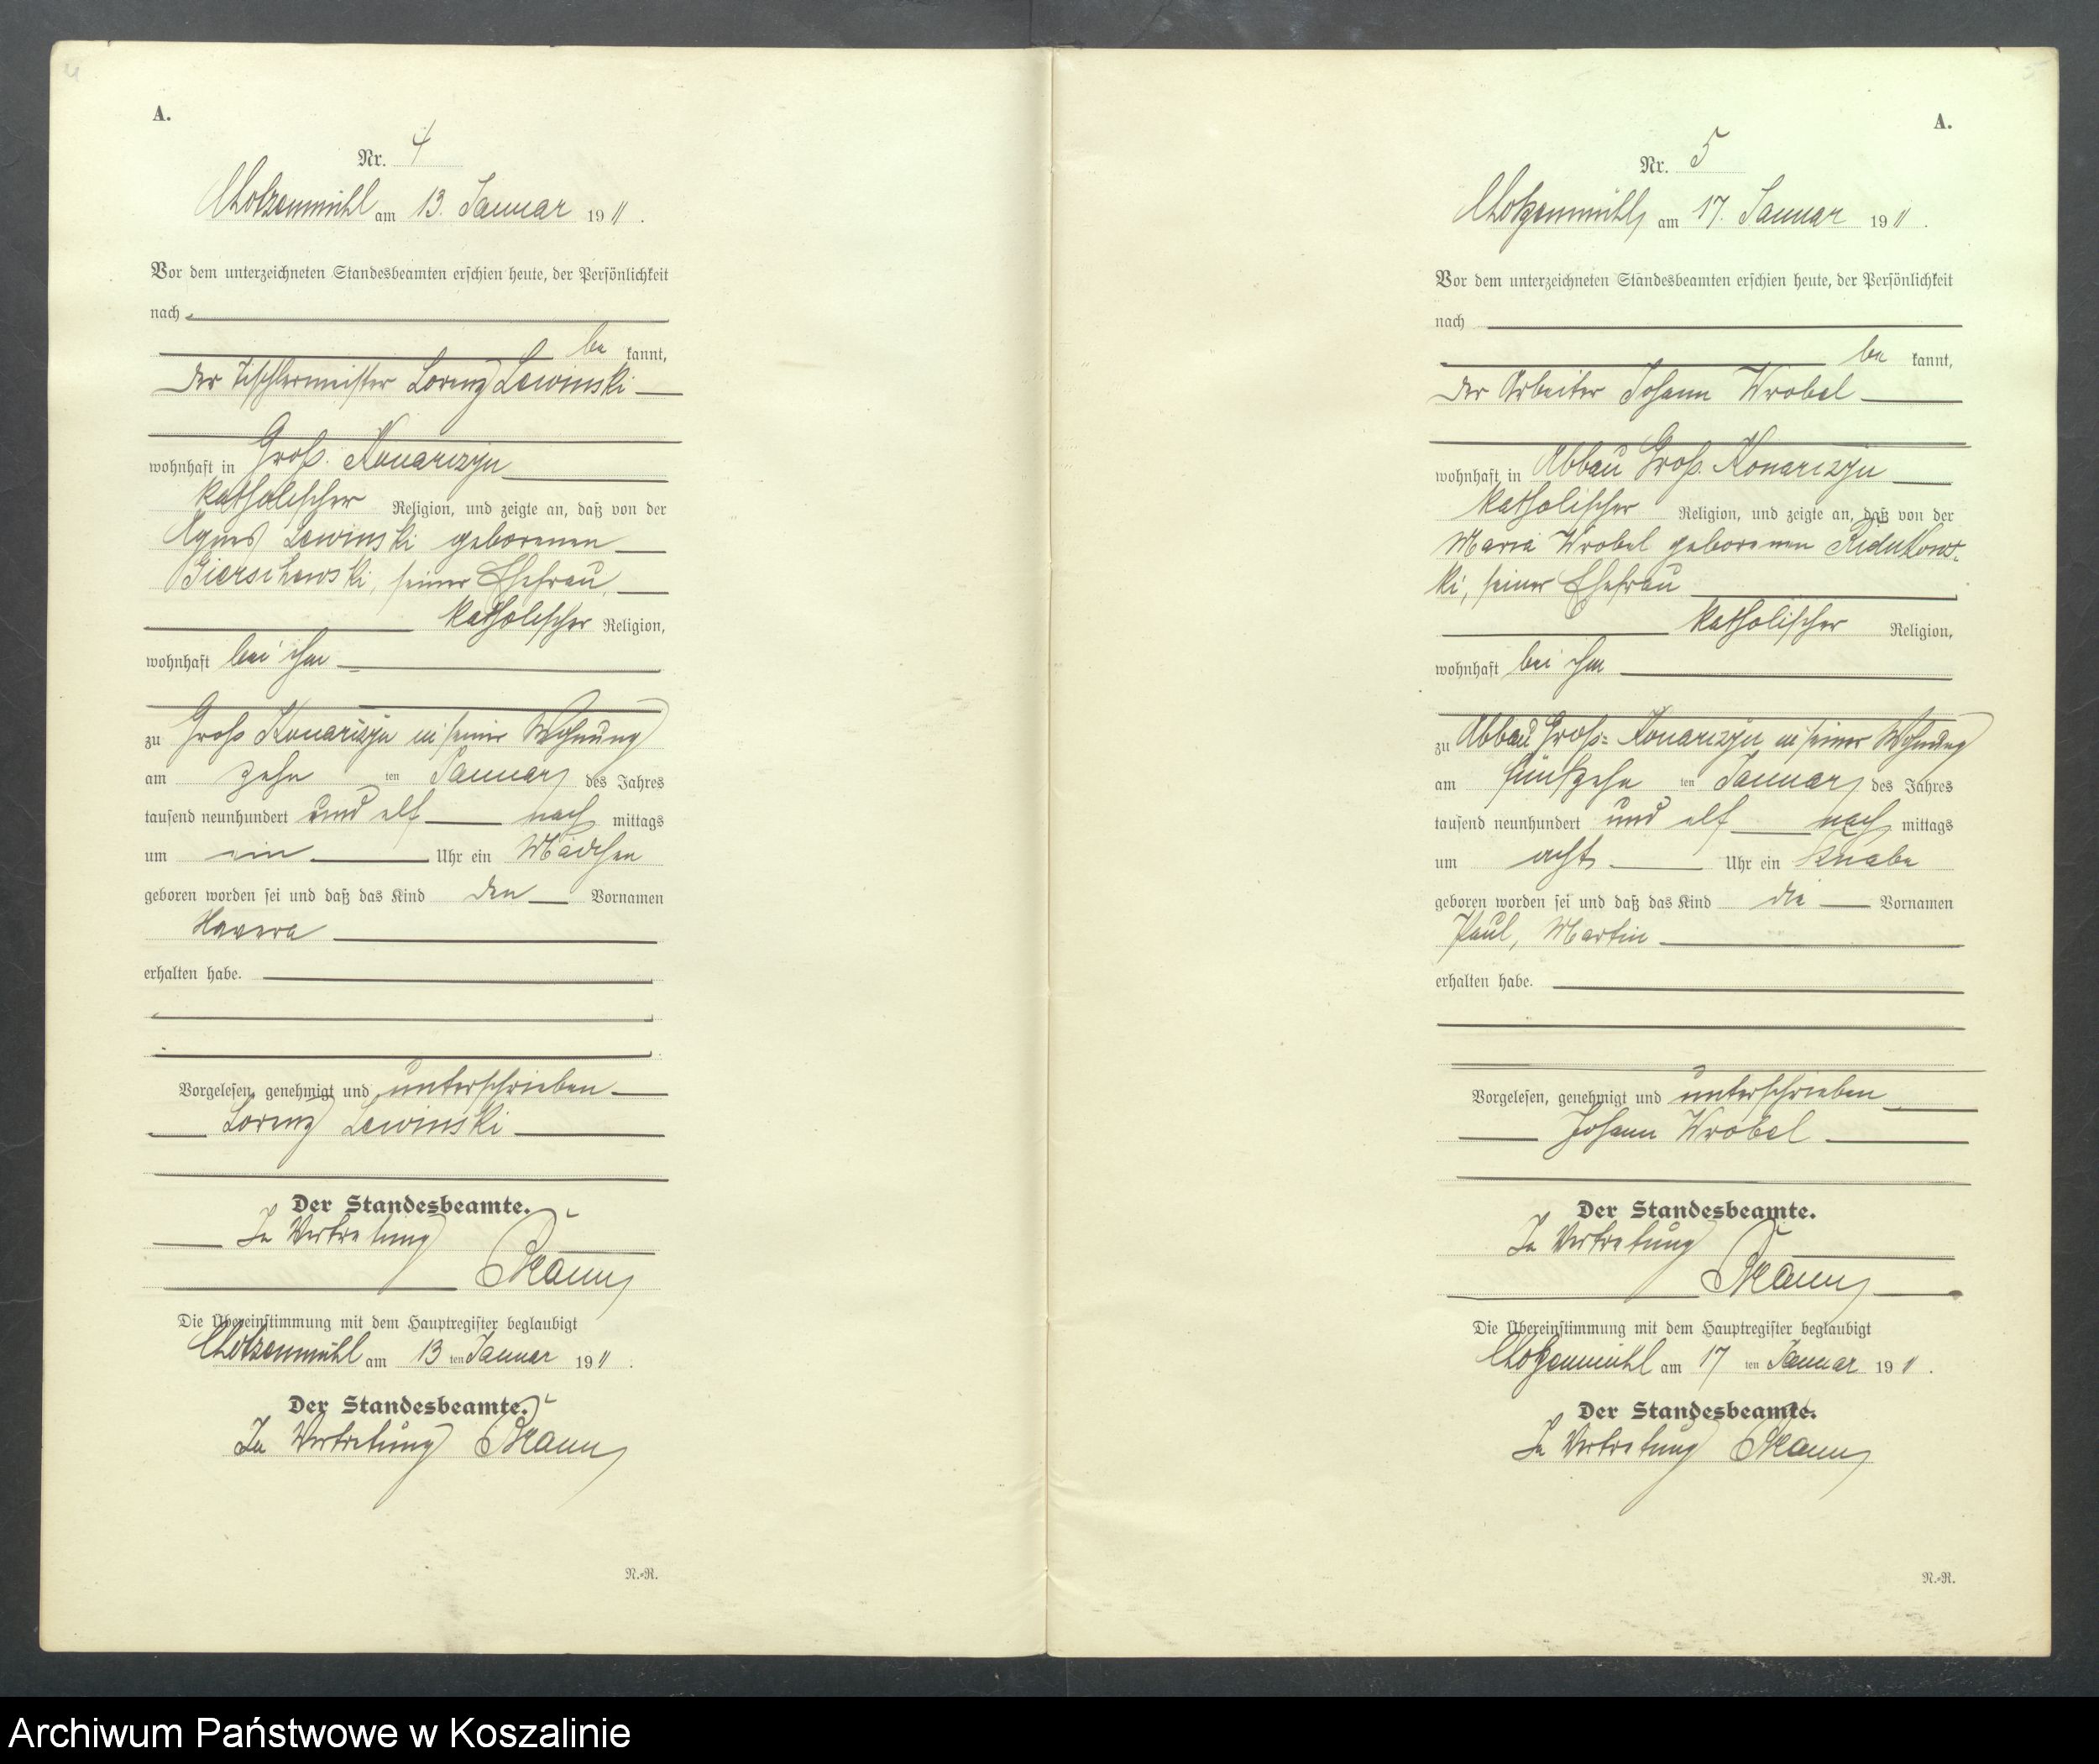 4
A.
Nr. 4
Chotzenmühl am 13. Januar 1911.
Vor dem unterzeichneten Standesbeamten erschien heute, der Persönlichkeit
nach
be kannt,
der Tischlermeister Lorenz Lewinski
wohnhaft in Groß Konarczyn
katholischer Religion, und zeigte an, daß von der
Agnes Lewinski geborenen
Gierschewski, seiner Ehefrau,
katholischer Religion,
wohnhaft bei ihm
zu Groß Konarczyn in seiner Wohnung
am zehn ten Januar des Jahres
tausend neunhundert und elf nach mittags
um ein Uhr ein Mädchen
geboren worden sei und daß das Kind den Vornamen
erhalten habe.
Vorgelesen, genehmigt und unterschrieben
Lorenz Lewinski
Der Standesbeamte.
In Vertretung
Die Übereinstimmung mit dem Hauptregister beglaubigt
Chotzenmühl am 13 ten Januar 1911.
Der Standesbeamte.
In Vertretung
N.=R.
5
A.
Nr. 5
Chotzenmühl am 17. Januar 1911.
Vor dem unterzeichneten Standesbeamten erschien heute, der Persönlichkeit
nach
be kannt,
der Arbeiter Johann Wrobel
wohnhaft in Abbau Groß Konarczyn
katholischer Religion, und zeigte an, daß von der
Maria Wrobel geborenen
ki, seiner Ehefrau
katholischer Religion,
wohnhaft bei ihm
zu Abbau Groß=Konarczyn in seiner Wohnung
am fünfzehn ten Januar des Jahres
tausend neunhundert und elf nach mittags
um acht Uhr ein Knabe
geboren worden sei und daß das Kind die Vornamen
Paul, Martin
erhalten habe.
Vorgelesen, genehmigt und unterschrieben
Johann Wrobel
Der Standesbeamte.
In Vertretung
Die Übereinstimmung mit dem Hauptregister beglaubigt
Chotzenmühl am 17 ten Januar 1911.
Der Standesbeamte.
In Vertretung
N.=R.
Archiwum Państwowe w Koszalinie